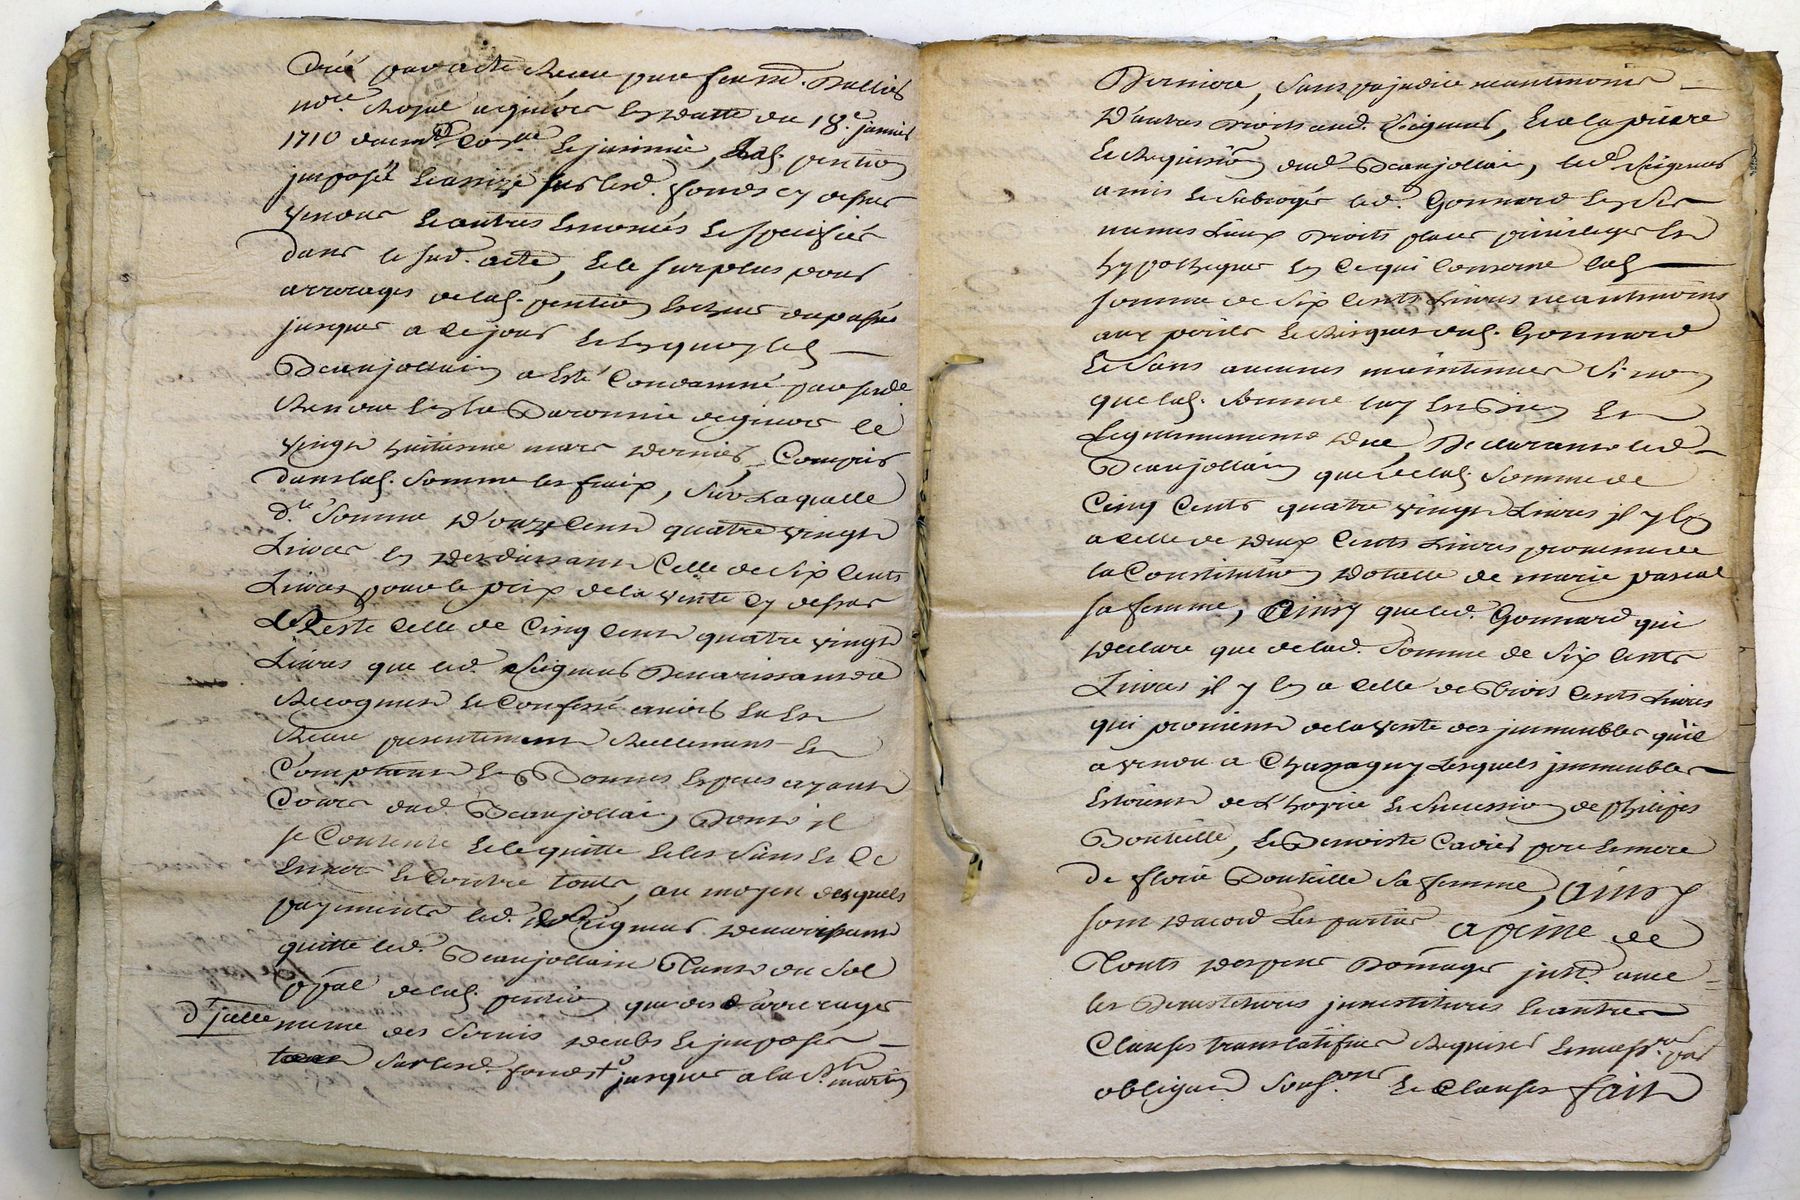 créé par acte receu par feu m.e
no.re Royal a givors en datte du 18.e janvier
1710 deuem.t Con.llé le jsinüé, lad. pention
jmposée et assize sur lesd. fonds cy dessus
vendus et autres enoncés et speciffiés
dans le sud. acte, et le surplus pour
arrerages de lad. pention echus du passé
jusques a ce jour et lesquels led
Beaujollain a esté Condamné par sentence
rendue en la Baronnie de givors le
vingt huitieme mars dernier, Compris
dans lad. Somme les fraix, sur laquelle
d.te Somme d'onze cent quatre vingt
Livres en deduisant Celle de Six Cents
Livres pour le prix de la vente cy dessus
Reste Celle de Cinq Cent quatre vingt
Livres que led. Seigneur
Recognoit et Confesse avoir eu et
Receu presentement reellement et
Comptant en Bonnes especes ayant
Cours dud. Beaujollain, Dont il
se Contente et le quitte et les Siens et Ce
envers et Contre touts, au moyen desquels
payements led. Seigneur
quitte led. Beaujollain tant du Sol
p̃pal de lad. pention que des arrerages
d'jcelle
meme des servis deubs et jmposés
sur lesd. fonds jusques a la S.t martin
Derniere, Sans prejudice neantmoins
D'autres droits aud. Seigneur, et a la priere
et Requisition dud. Beaujollain, led. Seigneur
a mis et subrogé led. Gonnard en ses
memes Lieux Droits places privileges et
hypotheques en Ce qui Concerne lad
somme de Six Cents Livres neantmoins
aux perils et risques dud. Gonnard
et Sans aucunes maintenües Sinon
que lad. Somme luy est Bien et
Legitimement düe, Declarant led
Beaujollain que de lad. Somme de
Cinq Cents quatre vingt Livres jl y en
a celle de deux Cents Livres provenüe de
la Constitution dotalle de marie pascal
sa femme, Ainsy que led. Gonnard qui
declare que de lad. Somme de Six Cents
Livres jl y en a Celle de trois Cents Livres
qui provient de la vente des jmmeubles qu'il
a vendu a Chassagny Lesquels jmmeubles
estoient de l'hoyrie et Succession de philipes
Bouteille, et Benoiste Cadier pere et mere
de fleurie Bouteille Sa femme, Ainsy
sont d'acord les parties a peine de
Touts despens Domages jnst. avec
les Devestitures jnvestitures et autres
Clauses translatifues Requises et necess.res par
obligaõn Soub.ons et Clauses fait